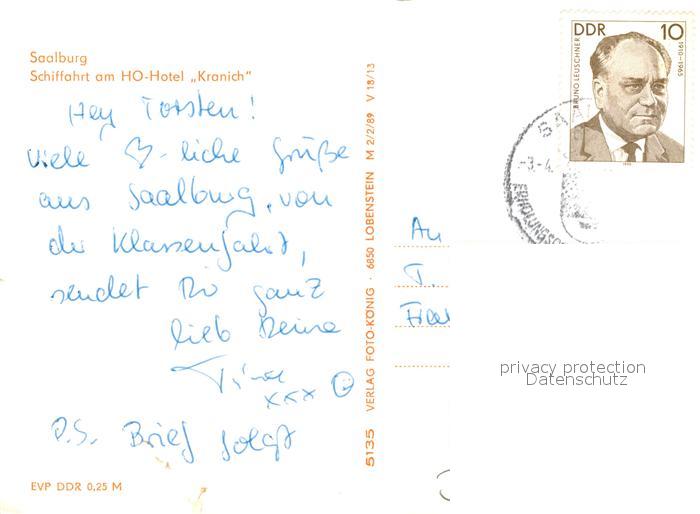 Saalburg
Schiffahrt am HO-Hotel „Kranich"
Hey Torsten!
viele ♡-liche Grüße
aus Saalburg, von
der Klassenfahrt,
sendet Dir ganz
lieb Deine
Tina
xxx ☺
P.S. Brief folgt
EVP DDR 0,25 M
5135 VERLAG FOTO-KÖNIG · 6850 LOBENSTEIN M 2/2/89 V 18/13
DDR 10
BRUNO LEUSCHNER 1910-1965
1990
SAAL
-3.-4.
ERHOLUNGSO
An
T.
privacy protection
Datenschutz